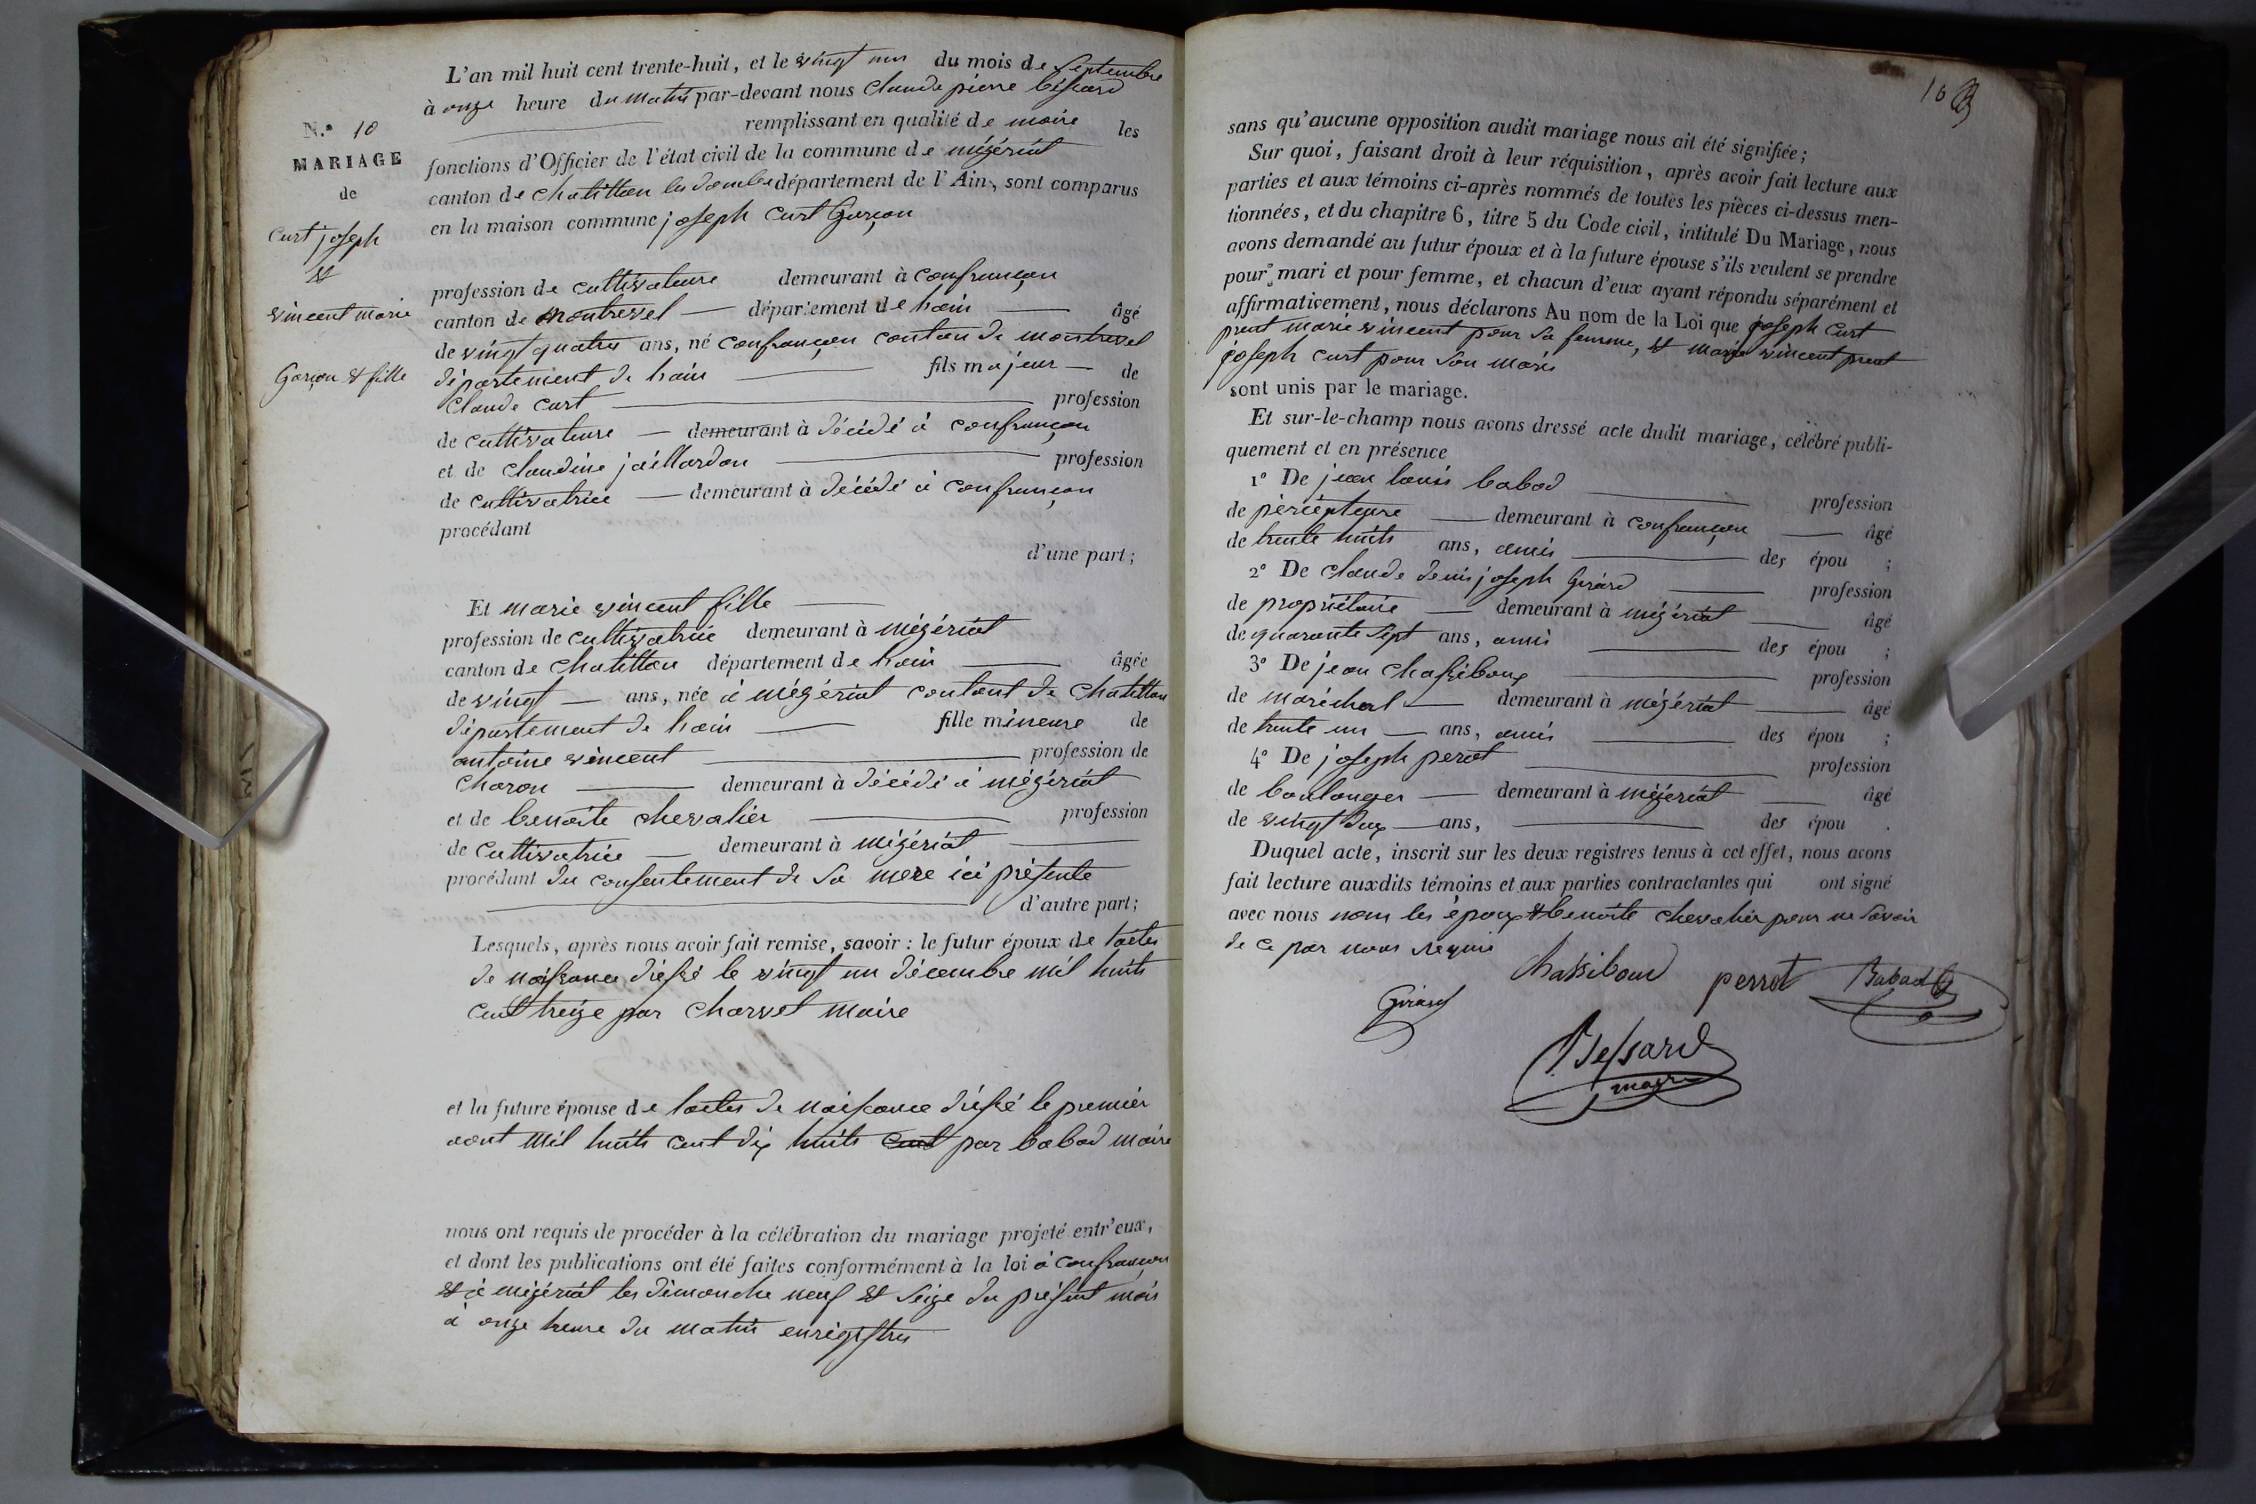 L'an mil huit cent trente-huit, et le vingt un du mois de Septembre
à onze heure du matin par-devant nous Claude pierre béssard
remplissant en qualité de maire les
fonctions d'Officier de l'état civil de la commune de mézériat
canton de chatillon les dombe département de l'Ain, sont comparus
en la maison commune joseph Curt Garçon
N.° 10
MARIAGE
de
Curt joseph
et
vincent marie
Garçon et fille
profession de cultivateure demeurant à confrançon
canton de montrevel département de hain âgé
de vingt quatre ans, né confrançon canton de montrevel
département de hain fils majeur de
Claude Curt profession
de cultivateure demeurant à décédé à confrançon
et de Claudine jaillardon profession
de cultivatrice demeurant à décédé à confrançon
procédant
d'une part;
Et marie vincent fille
profession de cultivatrice demeurant à mézériat
canton de chatillon département de hain âgée
de vingt ans, née à mézériat cantont de chatillon
département de hain fille mineure de
antoine vincent profession de
charon demeurant à décédé à mézériat
et de benoîte chevalier profession
de cultivatrice demeurant à mézériat
procédant du consentement de sa mere ici présente
d'autre part;
Lesquels, après nous avoir fait remise, savoir: le futur époux de lactes
de naissance dréssé le vingt un décembre mil huits
cent treize par charvet maire
et la future épouse de lactes de naissance dréssé le premier
aout mil huits cent dix huits cent par babad maire
nous ont requis de procéder à la célébration du mariage projeté entr'eux,
et dont les publications ont été faites conformément à la loi à confrançon
et à mézériat les dimanche neuf et seize du présent mois
à onze heure du matin enrégistrés
10
sans qu'aucune opposition audit mariage nous ait été signifiée;
Sur quoi, faisant droit à leur réquisition, après avoir fait lecture aux
parties et aux témoins ci-après nommés de toutes les pièces ci-dessus men-
tionnées, et du chapitre 6, titre 5 du Code civil, intitulé Du Mariage, nous
avons demandé au futur époux et à la future épouse s'ils veulent se prendre
pour mari et pour femme, et chacun d'eux ayant répondu séparément et
affirmativement, nous déclarons Au nom de la Loi que joseph Curt
prent marie vincent pour sa femme, et marie vincent prent
joseph curt pour son maris
sont unis par le mariage.
Et sur-le-champ nous avons dressé acte dudit mariage, célébré publi-
quement et en présence
1° De jean louis babad profession
de pèrcépteure demeurant à confrançon âgé
de trente huits ans, amis des épou ;
2° De claude denis joseph Girard profession
de propriétaire demeurant à mézériat âgé
de quarante sept ans, amis des épou ;
3° De jean chassiboux profession
de maréchal demeurant à mézériat âgé
de trente un ans, amis des épou ;
4° De joseph perrot profession
de boulanger demeurant à mézériat âgé
de vingt deux ans, des épou .
Duquel acte, inscrit sur les deux registres tenus à cet effet, nous avons
fait lecture auxdits témoins et aux parties contractantes qui ont signé
avec nous nom les époux et benoîte chevalier pour ne savoir
de ce par nous requis
Chassiboud perrot Babad
Girard
Bessard
mayre